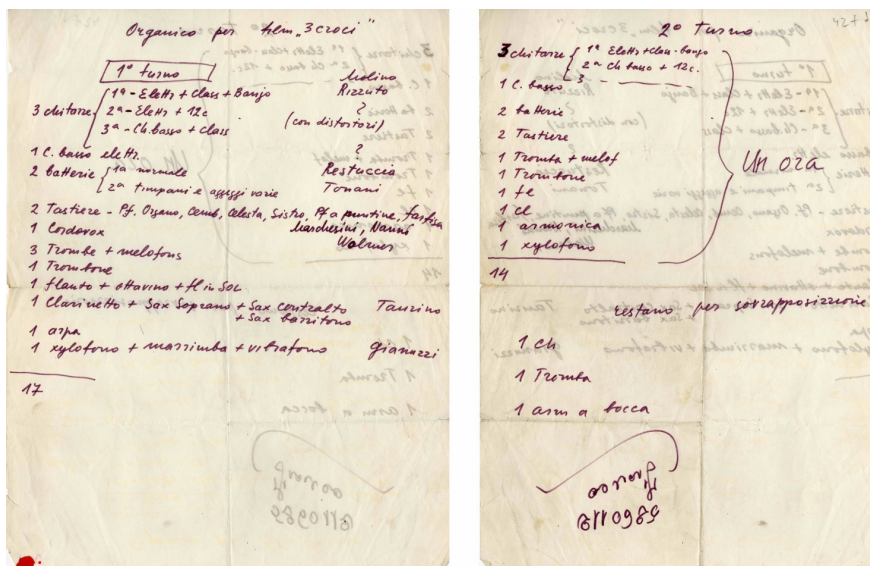 Organico per film "3 croci"
1º turno
3 chitarre
1ª - Elettr + Class + Banjo
Molino
Rizzuto
2ª - Elettr + 12c
?
3ª - Ch. basso + class
(con distortori)
1 C. basso elettr.
?
2 batterie
1ª normale
Restuccia
2ª timpani e aggeggi varie
Tonani
2 Tastiere - Pf. Organo, Cemb, Celesta, Sistro, Pf a puntine, farfisa
1 Cordovox
Marchesini, Nanni
Walmer
3 Trombe + melofono
1 Trombone
1 flauto + ottavino + fl in SOL
1 Clarinetto + Sax Soprano + Sax contralto
+ Sax baritono
Taurino
1 arpa
1 xylofono + marrimba + vibrafono
Gianuzzi
17
2º Turno
3 chitarre
1ª Elettr + class - banjo
2ª Ch basso + 12c.
3 -
1 C. basso
2 batterie
2 Tastiere
1 Tromba + melof
1 Trombone
1 fl
1 cl
1 armonica
1 xylofono
Un ora
14
restano per sovrapposizione
1 ch
1 Tromba
1 arm a bocca